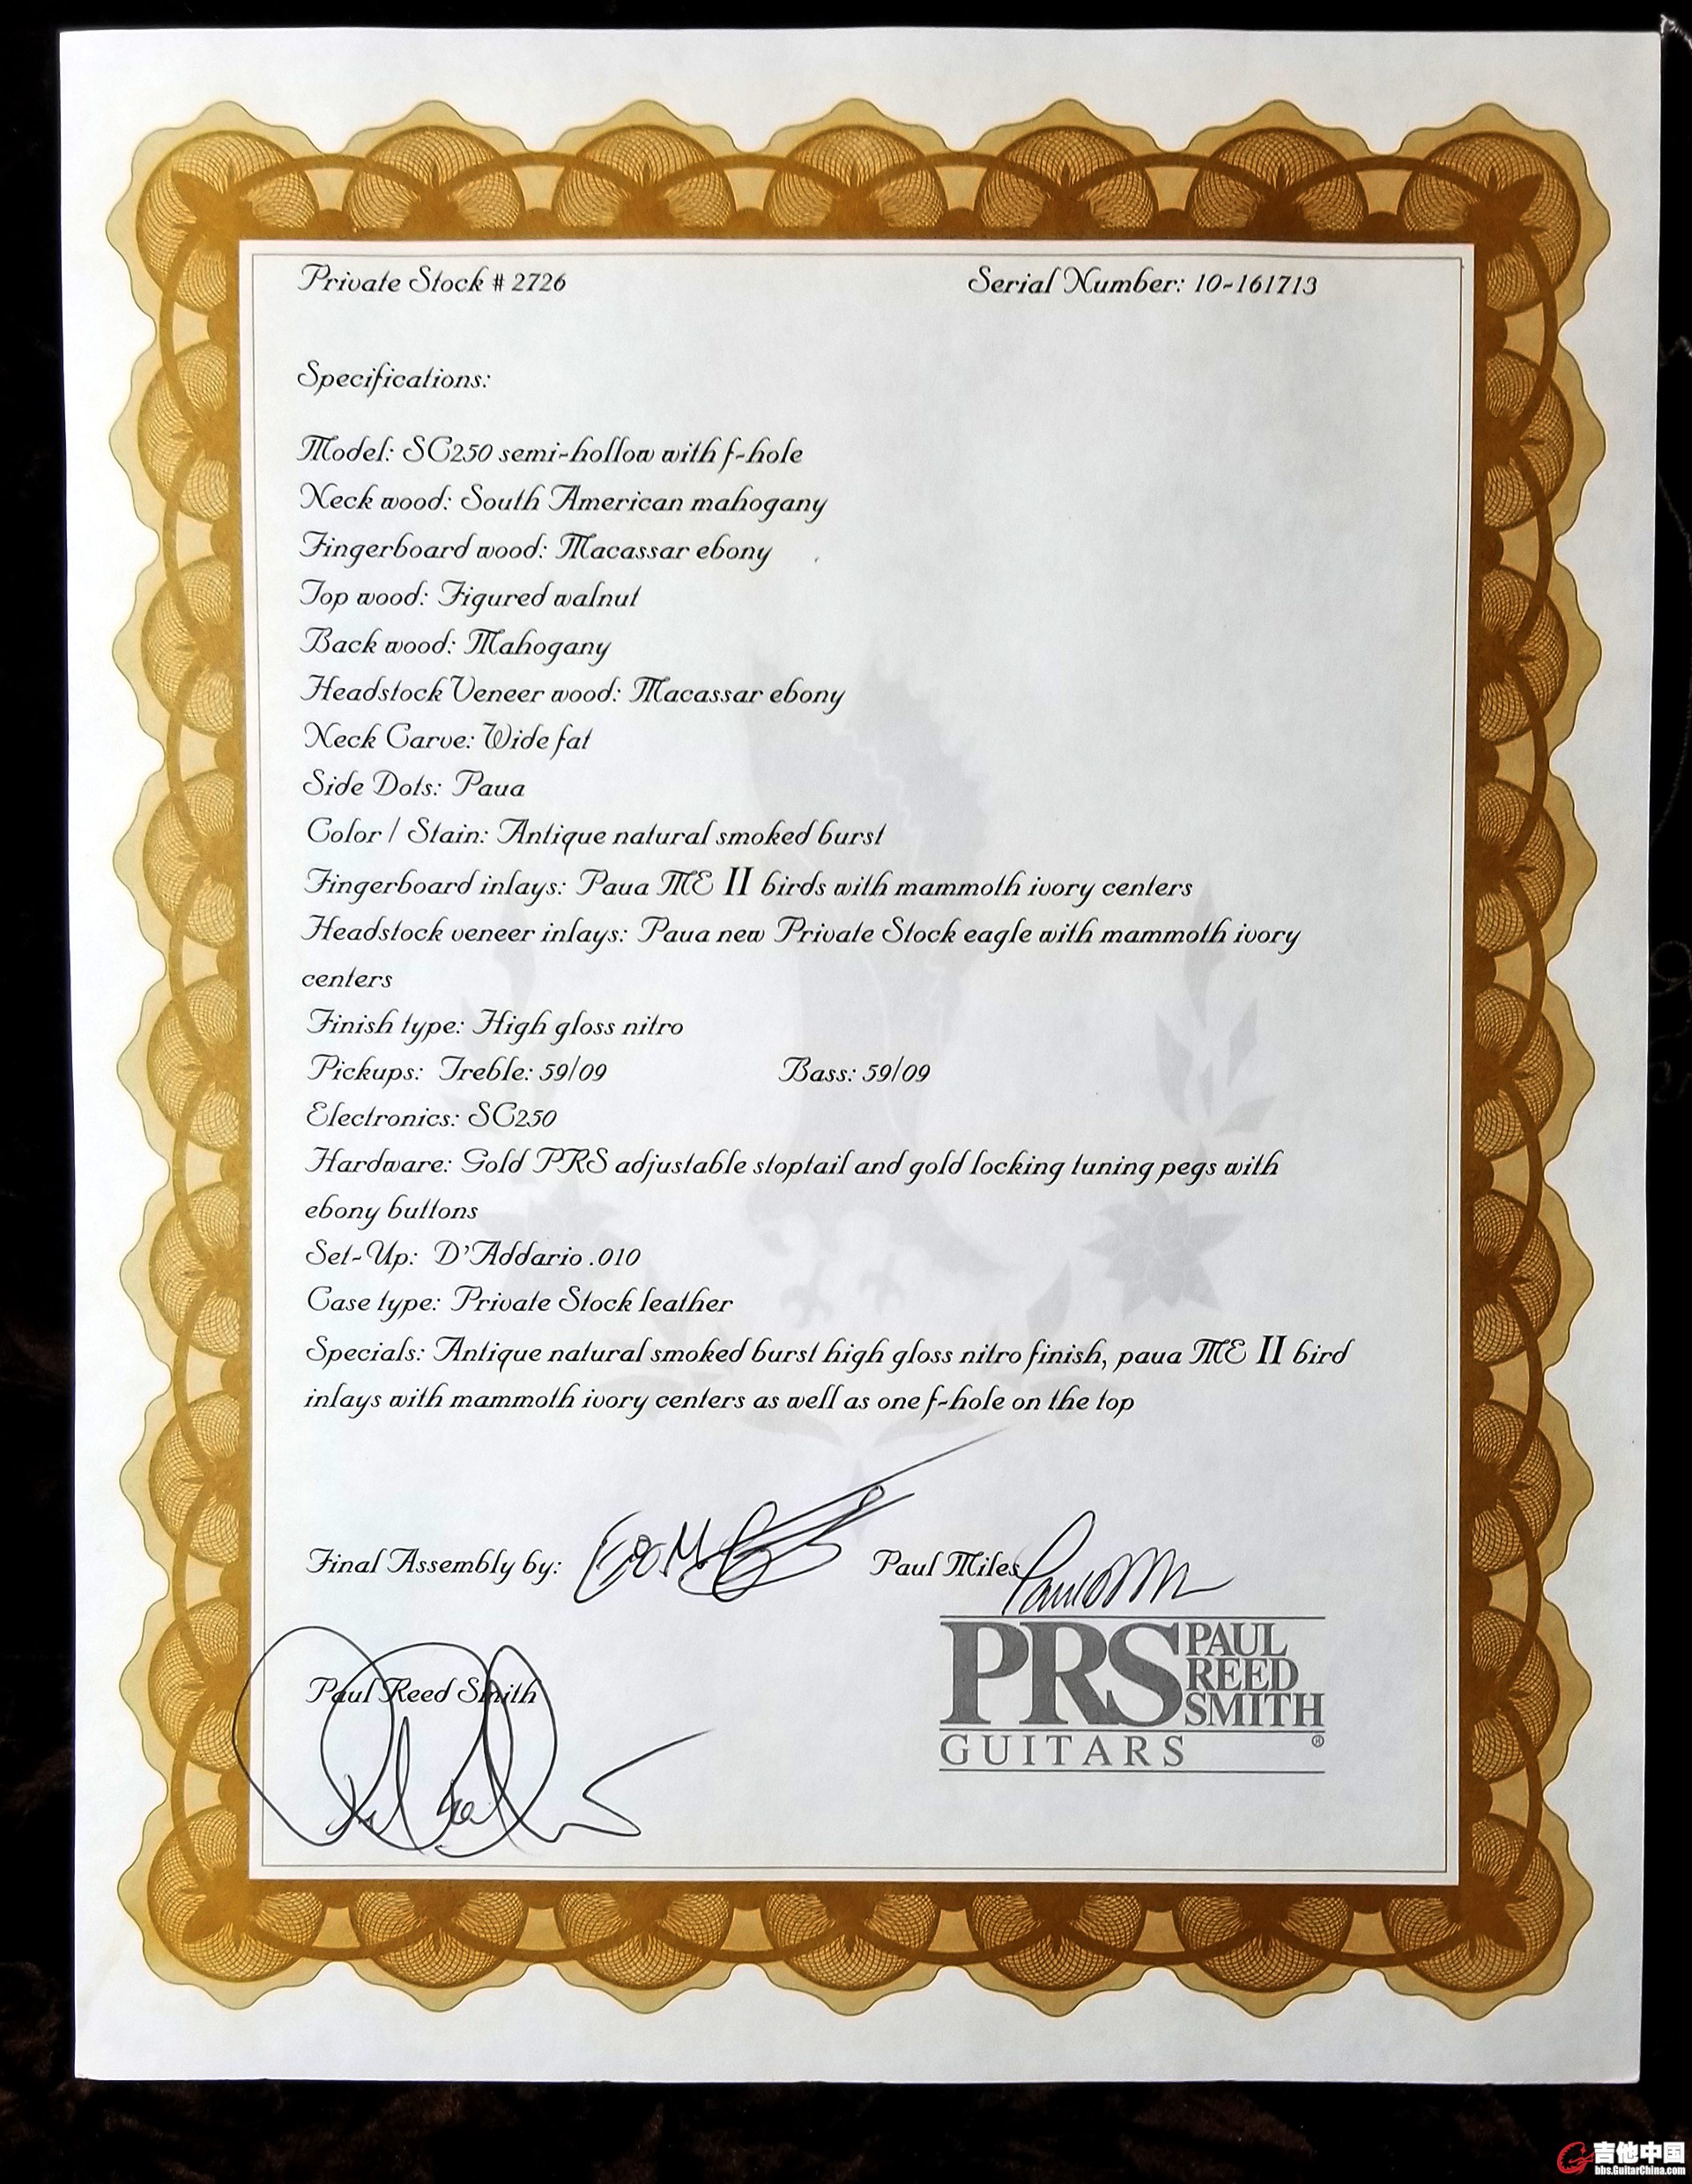 Private Stock # 2726 Serial Number: 10-161713
Specifications:
Model: SC250 semi-hollow with f-hole
Neck wood: South American mahogany
Fingerboard wood: Macassar ebony
Top wood: Figured walnut
Back wood: Mahogany
Headstock Veneer wood: Macassar ebony
Neck Carve: Wide fat
Side Dots: Paua
Color / Stain: Antique natural smoked burst
Fingerboard inlays: Paua ME II birds with mammoth ivory centers
Headstock veneer inlays: Paua new Private Stock eagle with mammoth ivory
centers
Finish type: High gloss nitro
Pickups: Treble: 59/09 Bass: 59/09
Electronics: SC250
Hardware: Gold PRS adjustable stoptail and gold locking tuning pegs with
ebony buttons
Set-Up: D'Addario .010
Case type: Private Stock leather
Specials: Antique natural smoked burst high gloss nitro finish, paua ME II bird
inlays with mammoth ivory centers as well as one f-hole on the top
Final Assembly by: Paul Miles
Paul Reed Smith
PRS PAUL
REED
SMITH
GUITARS ®
吉他中国
bbs.GuitarChina.com